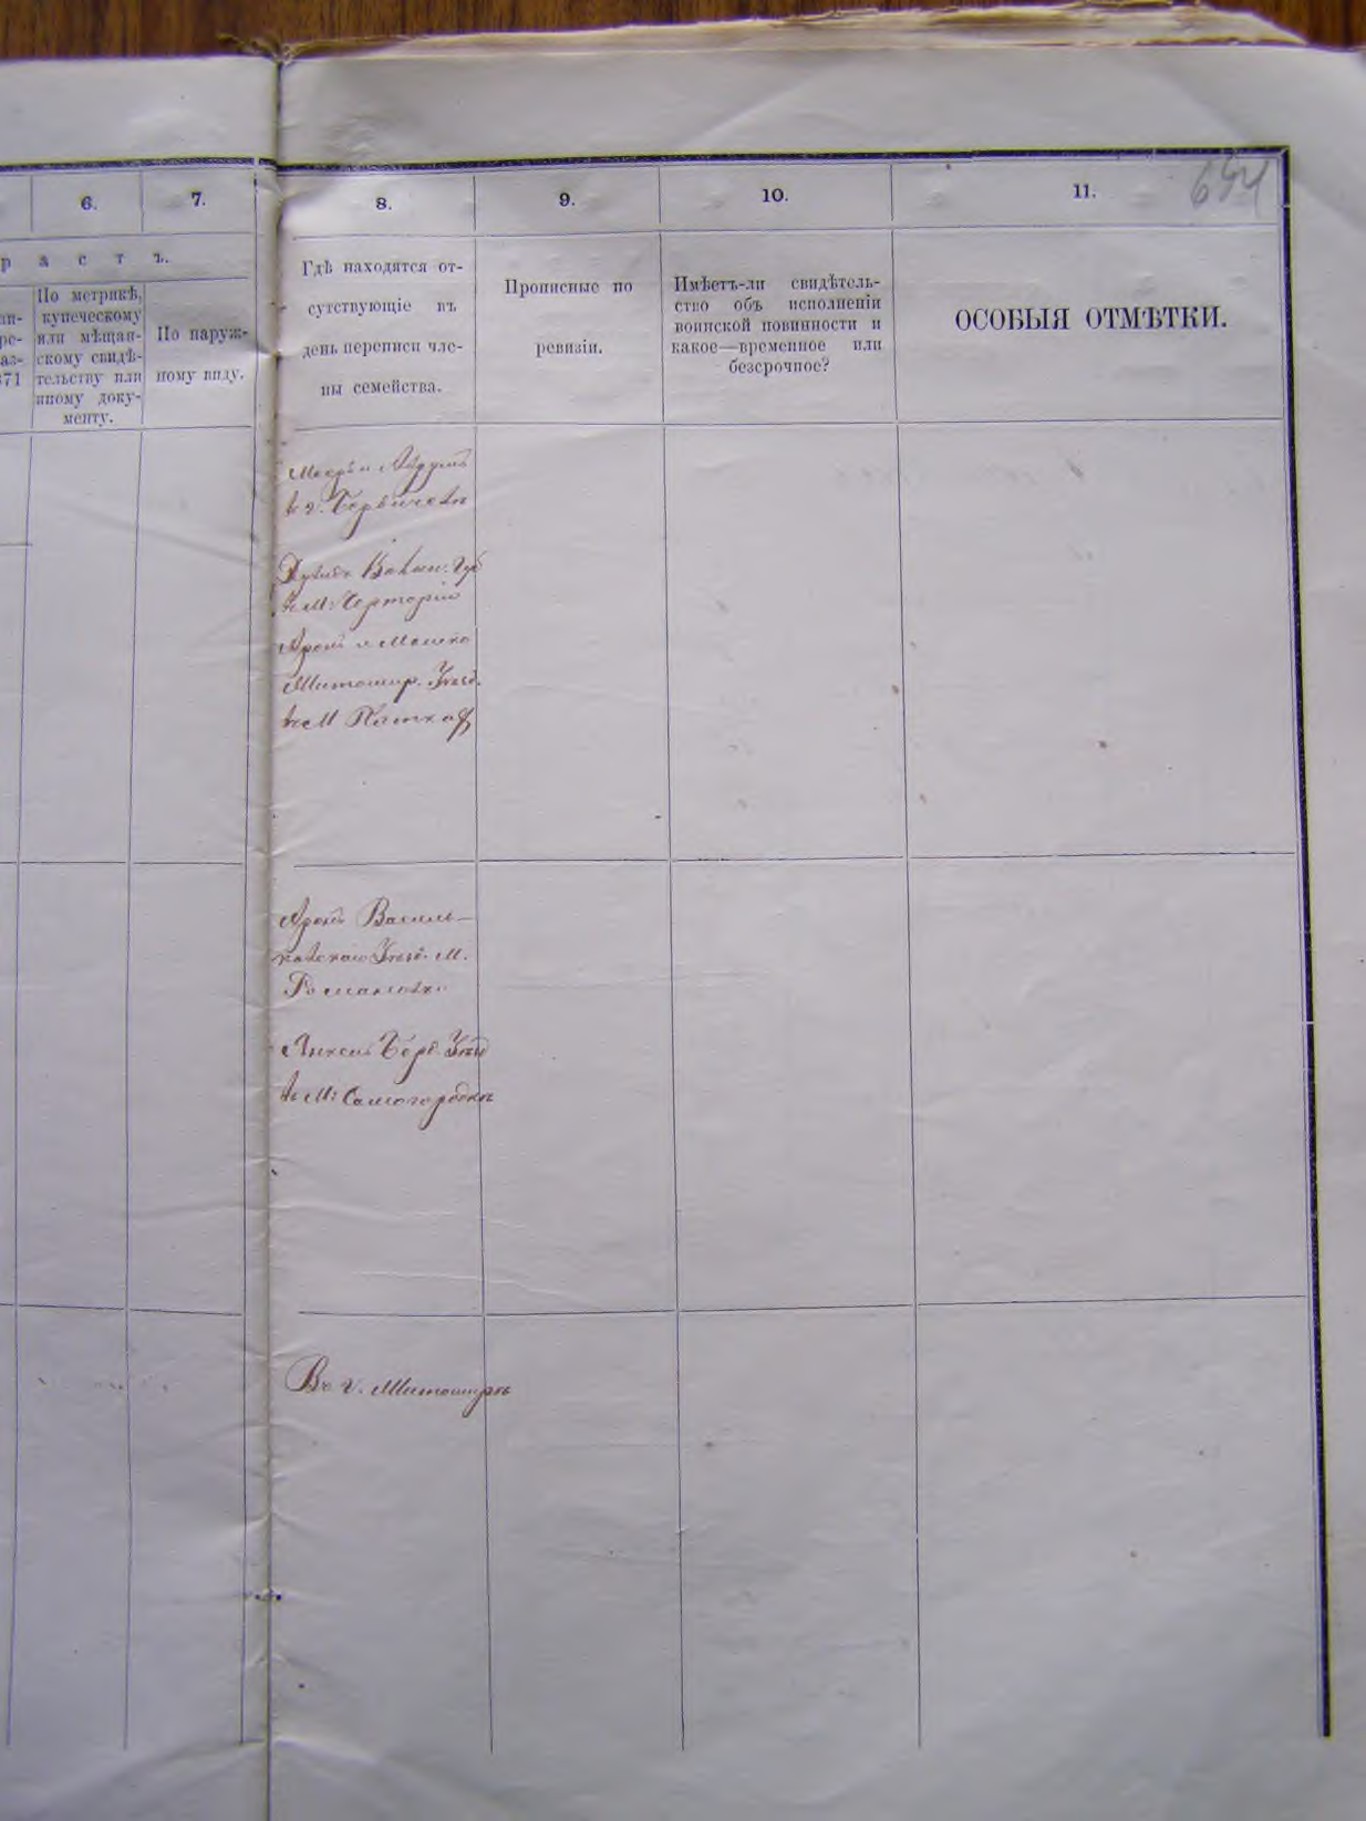 654
6.
7.
8.
9.
10.
11.
р а с т ъ.
По метрикѣ,
купеческому
или мѣщан-
скому свидѣ-
тельству или
иному доку-
менту.
По наруж-
ному виду.
Гдѣ находятся от-
сутствующіе въ
день переписи чле-
ны семейства.
Прописные по
ревизіи.
Имѣетъ-ли свидѣтель-
ство объ исполненіи
воинской повинности и
какое—временное или
безсрочное?
ОСОБЫЯ ОТМѢТКИ.
ре-
аз-
871
в г. Бердичевѣ
Волын. Губ
в М: Чорторіи
Аронъ и Мошко
Житомир. Уѣзд.
в М
Аронъ Василь-
ковскаго Уѣзд. М.
Романовка
Бѣрд. Уѣзд
в М: Самогородкѣ
Въ г. Житомирѣ